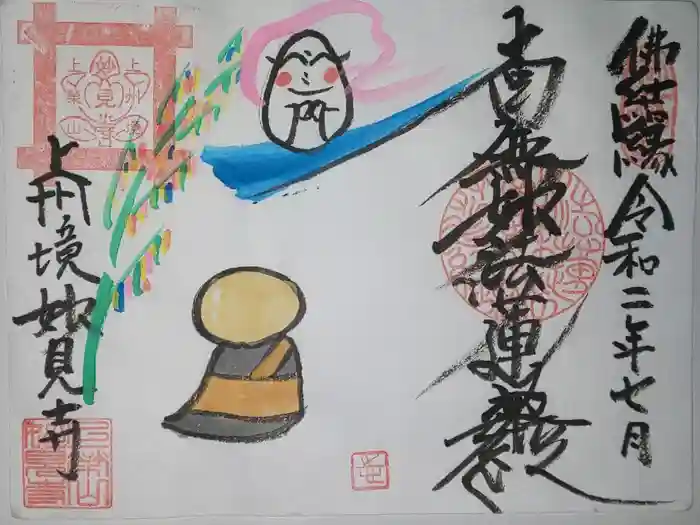 佛結縁 令和二年七月
南無妙法蓮華経
上州境 妙見寺
妙見寺
上州
上栄山